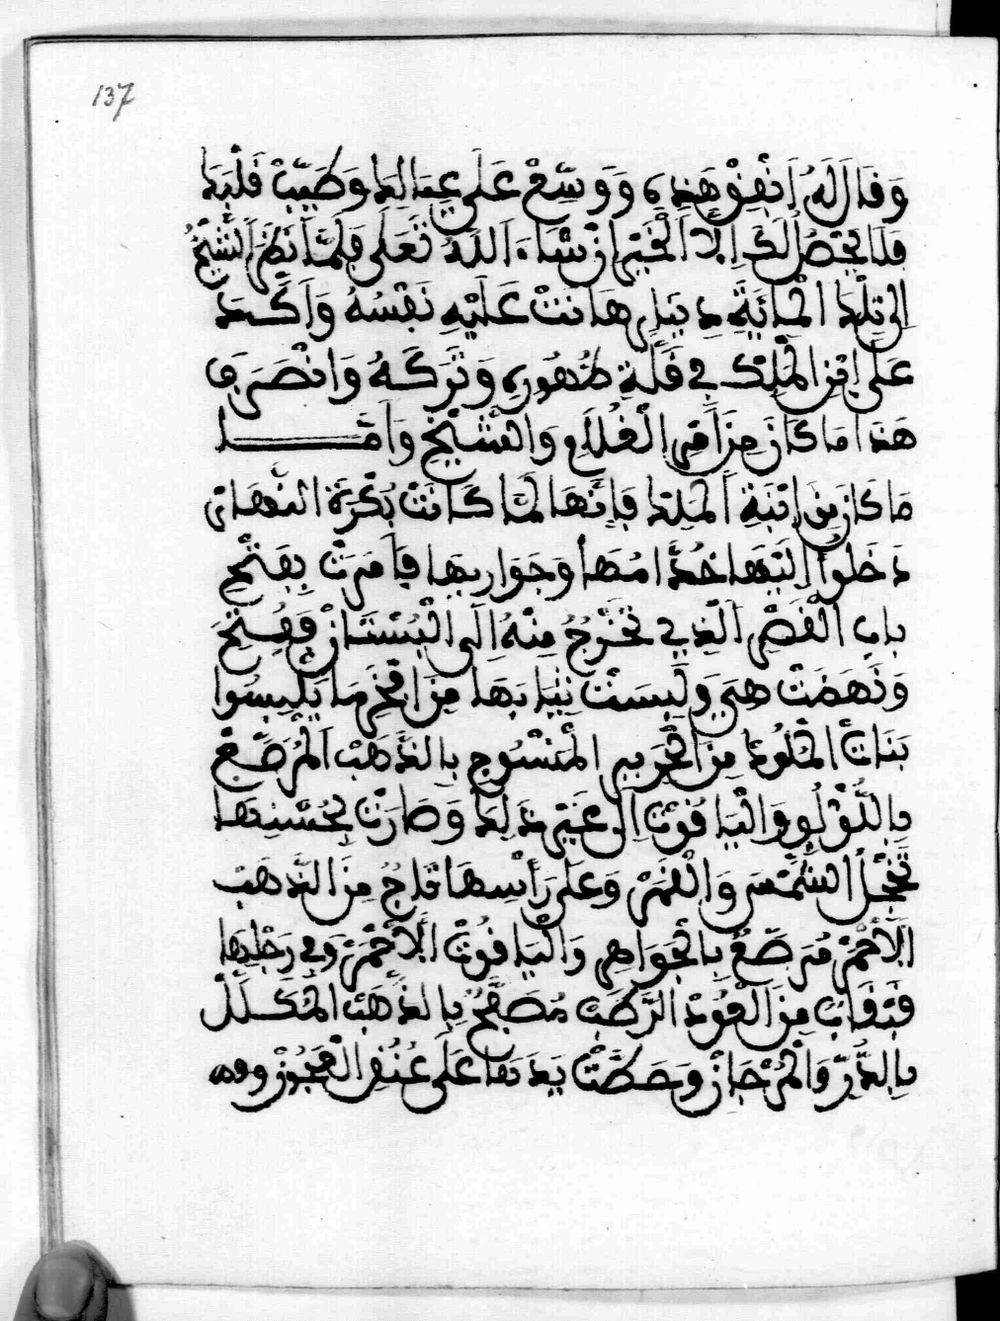 137
وَقَالَ لَهُ اَنْفِقْ هَذِهِ وَوَسِّعْ عَلَى عِيَالِكَ وَطَيِّبْ قَلْبَكَ
فَلَا يَحْصُلُ لَكَ اِلَّا الْخَيْرُ اِنْ شَاءَ اللَّهُ تَعَلَى فَلَمَّا نَظَرَ الشَّيْخُ
اِلَى تِلْكَ الْمِائَةِ دِينَارٍ هَانَتْ عَلَيْهِ نَفْسُهُ وَاَكَّدَ
عَلَى ابْنِ الْمَلِكِ فِي قِلَّةِ ظُهُورِهِ وَتَرَكَهُ وَانْصَرَفَ
هَذَا مَا كَانَ مِنْ اَمْرِ الْغُلَامِ وَالشَّيْخِ وَاَمَّا
مَا كَانَ مِنِ ابْنَةِ الْمَلِكِ فَإِنَّهَا لَمَّا كَانَتْ بُكْرَةُ النَّهَارِ
دَخَلُوا اِلَيْهَا خُدَّامُهَا وَجَوَارِيهَا فَأَمَرَتْ بِفَتْحِ
بَابِ الْقَصْرِ الَّذِي تَخْرُجُ مِنْهُ اِلَى الْبُسْتَانِ فَفُتِحَ
وَنَهَضَتْ هِيَ وَلَبِسَتْ ثِيَابَهَا مِنْ اَفْخَرِ مَا يَلْبِسُوا
بَنَاتُ الْمُلُوكِ مِنَ الْحَرِيرِ الْمَنْسُوجِ بِالذَّهَبِ الْمُرَصَّعِ
بِاللُّؤْلُؤِ وَالْيَاقُوتِ اِلَى غَيْرِ ذَلِكَ وَصَارَتْ بِحُسْنِهَا
تُخْجِلُ الشَّمْسَ وَالْقَمَرَ وَعَلَى رَأْسِهَا تَاجٌ مِنَ الذَّهَبِ
الْاَحْمَرِ مُرَصَّعٌ بِالْجَوَاهِرِ وَالْيَاقُوتِ الْاَحْمَرِ وَفِي رِجْلِهَا
قَبْقَابٌ مِنَ الْعُودِ الرَّطْبِ مُصَفَّحٌ بِالذَّهَبِ الْمُكَلَّلِ
بِالدُّرِّ وَالْمَرْجَانِ وَحَطَّتْ يَدَهَا عَلَى عُنُقِ الْعَجُوزِ